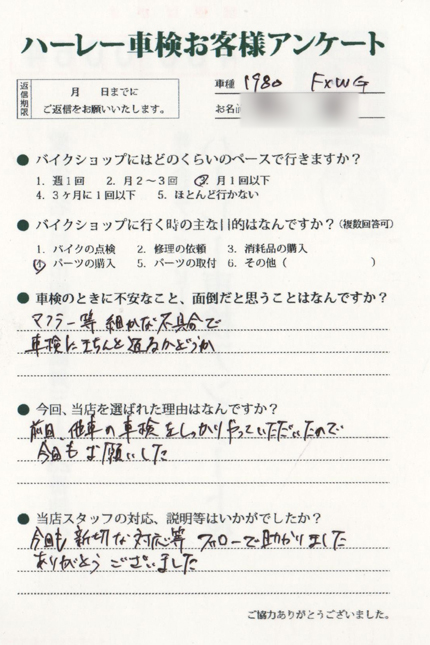 ハーレー車検お客様アンケート
返信期限
月　日までに
ご返信をお願いいたします。
車種 1980 FXWG
お名前
● バイクショップにはどのくらいのペースで行きますか？
1. 週1回　2. 月2〜3回　3. 月1回以下
4. 3ヶ月に1回以下　5. ほとんど行かない
● バイクショップに行く時の主な目的はなんですか？(複数回答可)
1. バイクの点検　2. 修理の依頼　3. 消耗品の購入
4. パーツの購入　5. パーツの取付　6. その他（　　　　）
● 車検のときに不安なこと、面倒だと思うことはなんですか？
マフラー等 細かな不具合で
車検にきちんと通るかどうか
● 今回、当店を選ばれた理由はなんですか？
前回、他車の車検をしっかりやっていただいたので
今回もお願いした
● 当店スタッフの対応、説明等はいかがでしたか？
今回も親切な対応等 フォローで助かりました
ありがとうございました
ご協力ありがとうございました。